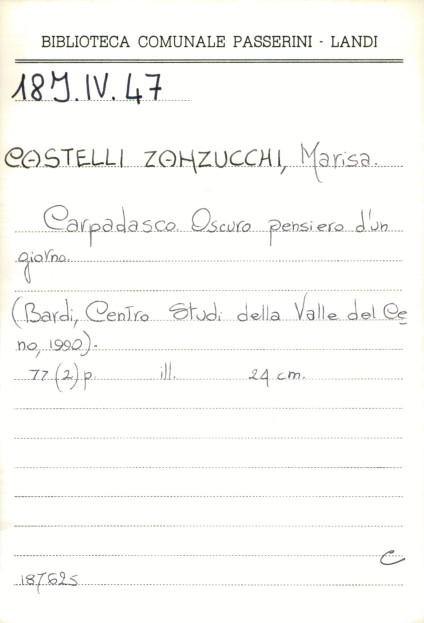 BIBLIOTECA COMUNALE PASSERINI - LANDI
18J.IV.47
CASTELLI ZANZUCCHI, Marisa.
Carpadasco. Oscuro pensiero d'un
giorno.
(Bardi, Centro Studi della Valle del Ce
no, 1990).
77 (2) p. ill. 24 cm.
C
187625